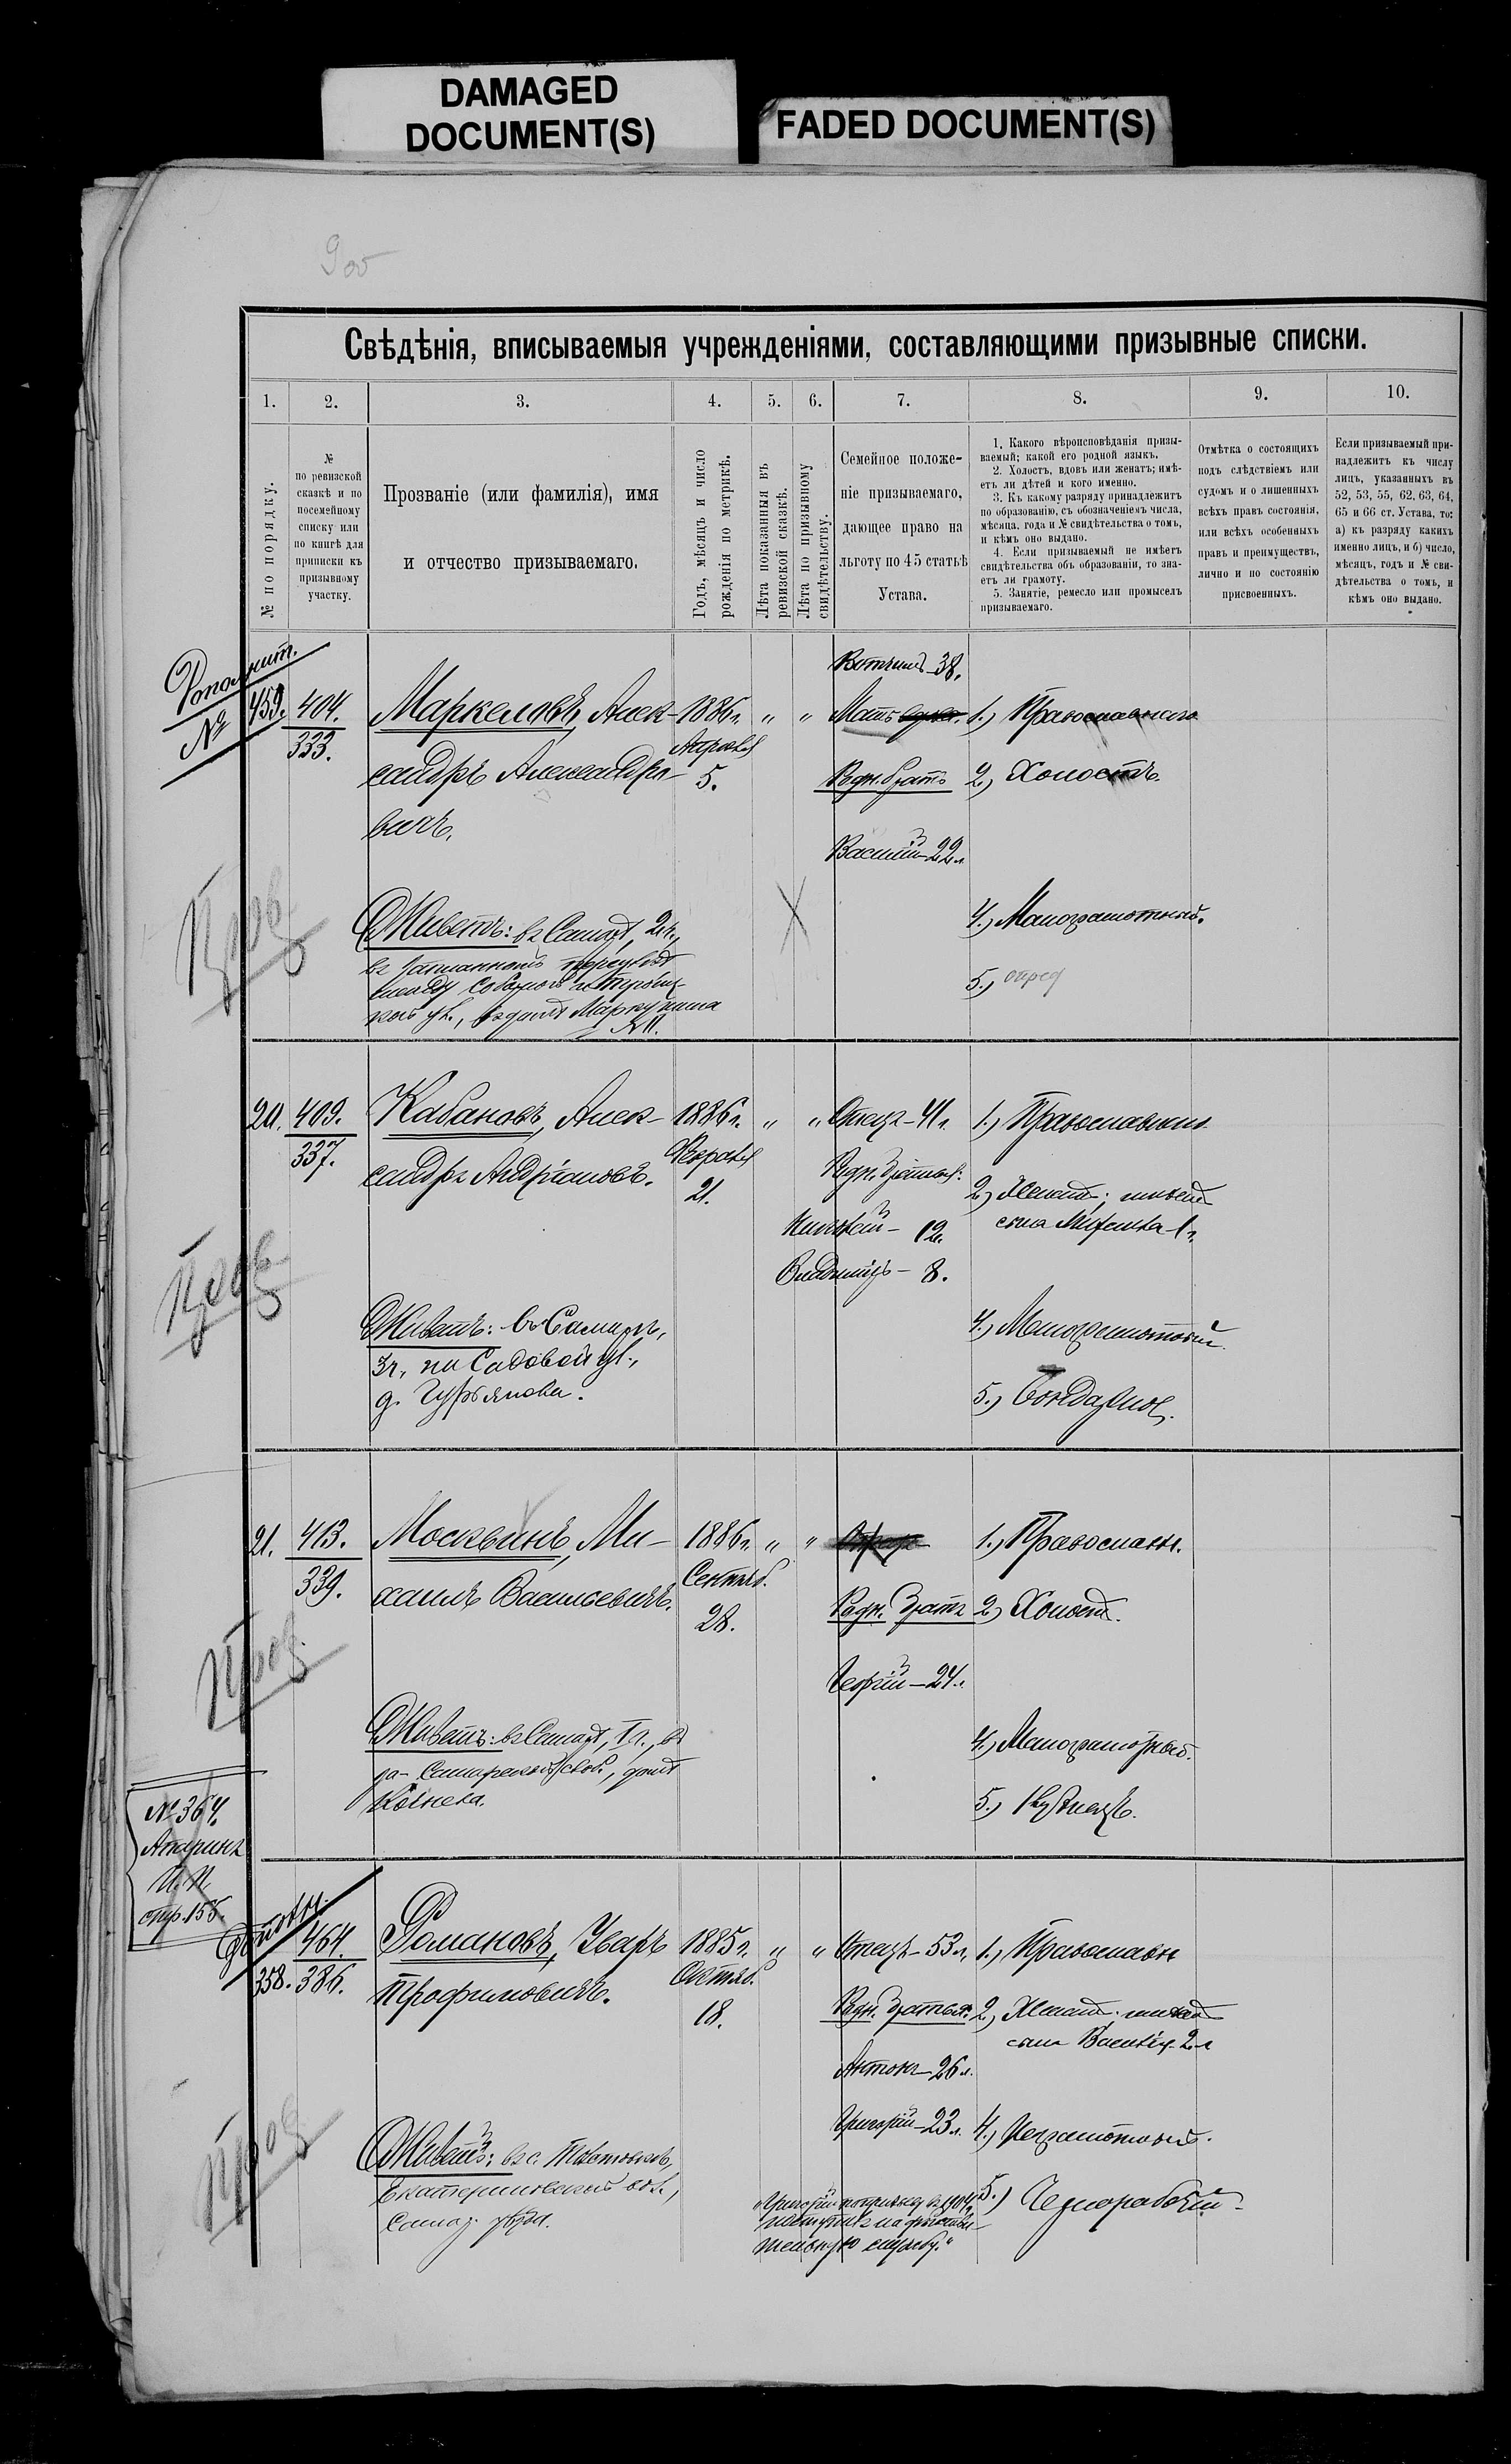 DAMAGED
DOCUMENT(S)
FADED DOCUMENT(S)
9об
Свѣдѣнія, вписываемыя учрежденіями, составляющими призывные списки.
1. 2. 3. 4. 5. 6. 7. 8. 9. 10.
№ по порядку.
№
по ревизской
сказкѣ и по
посемейному
списку или
по книгѣ для
приписки къ
призывному
участку.
Прозваніе (или фамилія), имя
и отчество призываемаго.
Годъ, мѣсяцъ и число
рожденія по метрикѣ.
Лѣта показанныя въ
ревизской сказкѣ.
Лѣта по призывному
свидѣтельству.
Семейное положе-
ніе призываемаго,
дающее право на
льготу по 45 статьѣ
Устава.
1. Какого вѣроисповѣданія призы-
ваемый; какой его родной языкъ.
2. Холостъ, вдовъ или женатъ; имѣ-
етъ ли дѣтей и кого именно.
3. Къ какому разряду принадлежитъ
по образованію, съ обозначеніемъ числа,
мѣсяца, года и № свидѣтельства о томъ,
и кѣмъ оно выдано.
4. Если призываемый не имѣетъ
свидѣтельства объ образованіи, то зна-
етъ ли грамоту.
5. Занятіе, ремесло или промыселъ
призываемаго.
Отмѣтка о состоящихъ
подъ слѣдствіемъ или
судомъ и о лишенныхъ
всѣхъ правъ состоянія,
или всѣхъ особенныхъ
правъ и преимуществъ,
лично и по состоянію
присвоенныхъ.
Если призываемый при-
надлежитъ къ числу
лицъ, указанныхъ въ
52, 53, 55, 62, 63, 64,
65 и 66 ст. Устава, то:
а) къ разряду какихъ
именно лицъ, и б) число,
мѣсяцъ, годъ и № сви-
дѣтельства о томъ, и
кѣмъ оно выдано.
Дополнит.
№ 459.
404.
333.
Маркеловъ, Алек-
сандръ Александро-
вичъ.
1886 г.
Апрѣля
5.
" "
Вотчимъ 38.
Мать
Родн. братъ
Василій 22 л.
1.) Православнаго
2.) Холостъ.
4.) Малограмотный.
5.)
Пров.
Живетъ: въ Самарѣ, 2 ч.,
между Соборной и Троиц-
кой ул., въ домѣ
20. 409.
337.
Кабановъ, Алек-
сандръ Андріановъ.
1886 г.
Февраля
21.
" "
Отецъ - 41 г.
Родн. братья:
Николай - 12.
Владиміръ - 8.
1.) Православный
2.) Женатъ; имѣетъ
сына
4.) Малограмотный
5.) Бондарное.
Пров.
Живетъ: въ Самарѣ,
3 ч., на Садовой ул.,
д. Гурьянова.
21. 413.
339.
Москвинъ, Ми-
хаилъ Васильевичъ.
1886 г.
Сентяб.
28.
" "
Родн. братъ
Георгій - 24 л.
1.) Православн.
2.) Холостъ.
4.) Малограмотный.
5.) Кузнецъ.
Пров.
Живетъ: въ Самарѣ, 1 ч., въ
за-Самарской слоб., домѣ
№ 364.
Апаринъ
И. П.
стр. 155.
Дополн.
358.
464.
386.
Романовъ, Уваръ
Трофимовичъ.
1885 г.
Октяб.
18.
" "
Отецъ - 53 л.
Родн. братья:
Антонъ - 26 л.
Григорій - 23 л.
1.) Православн
2.) Женатъ; имѣетъ
сына Василія 2 л
4.) Неграмотный.
5.) Чернорабочій
Пров.
Живетъ: въ с.
Екатериновской вол.,
Самар. уѣзда.
"Григорій по призыву въ 1904 г.
поступилъ на дѣйстви-
тельную службу."